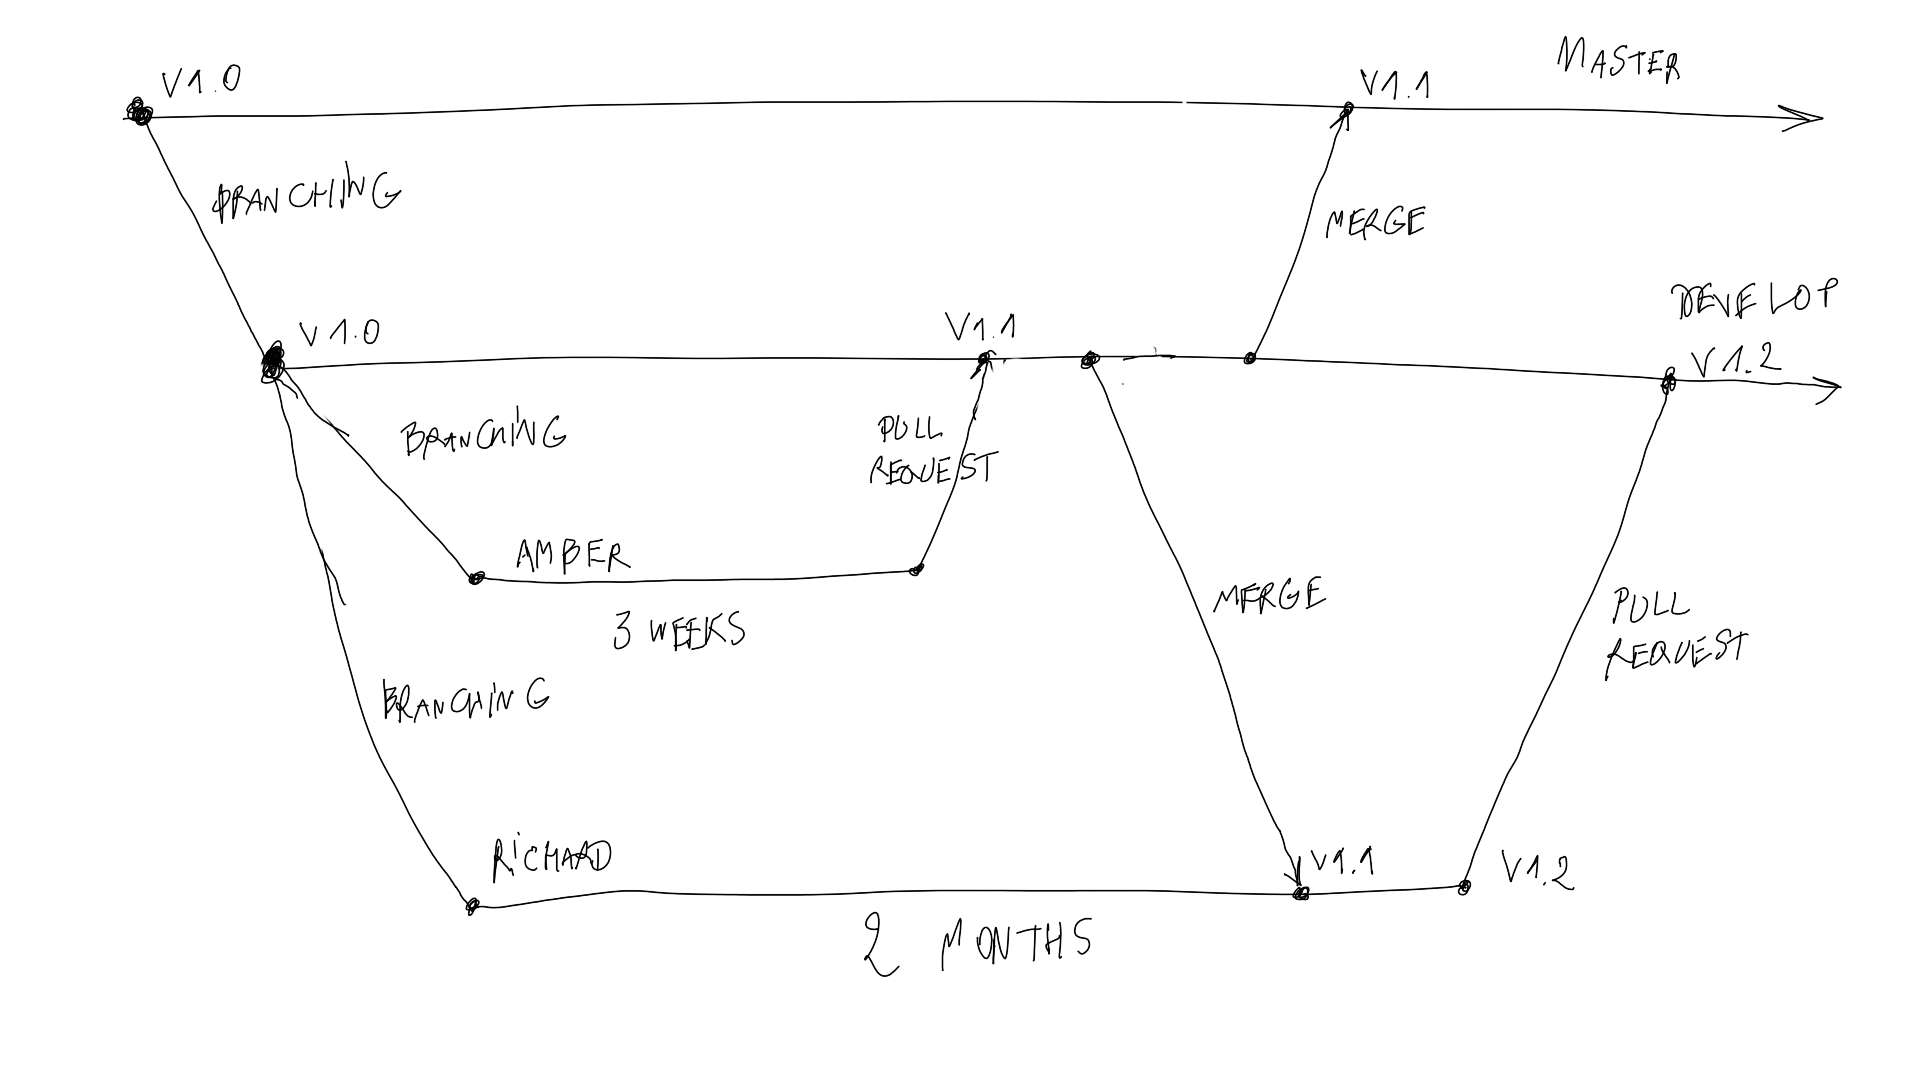 V1.0
V1.1
MASTER
BRANCHING
MERGE
DEVELOP
V1.0
V1.1
V1.2
BRANCHING
PULL
REQUEST
AMBER
3 WEEKS
MERGE
PULL
REQUEST
BRANCHING
RICHARD
V1.1
V1.2
2 MONTHS